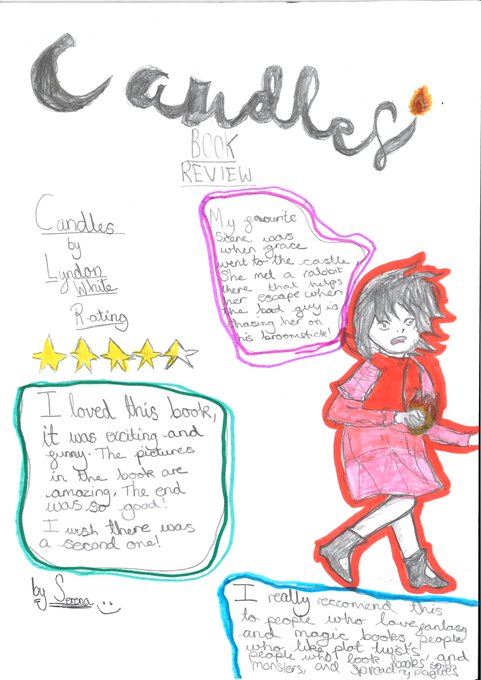 Candles
BOOK
REVIEW
Candles
by
Lyndon
White
Rating
My favourite
scene was
when grace
went to the castle
She met a rabbit
there that helps
her escape when
the bad guy is
chasing her on
his broomstick!
I loved this book,
it was exciting and
funny. The pictures
in the book are
amazing. The end
was so good!
I wish there was
a second one!
by Serena
I really reccomend this
to people who love fantasy
and magic books people
who like plot twists, and
people who look books with
monsters, and spreading plagues